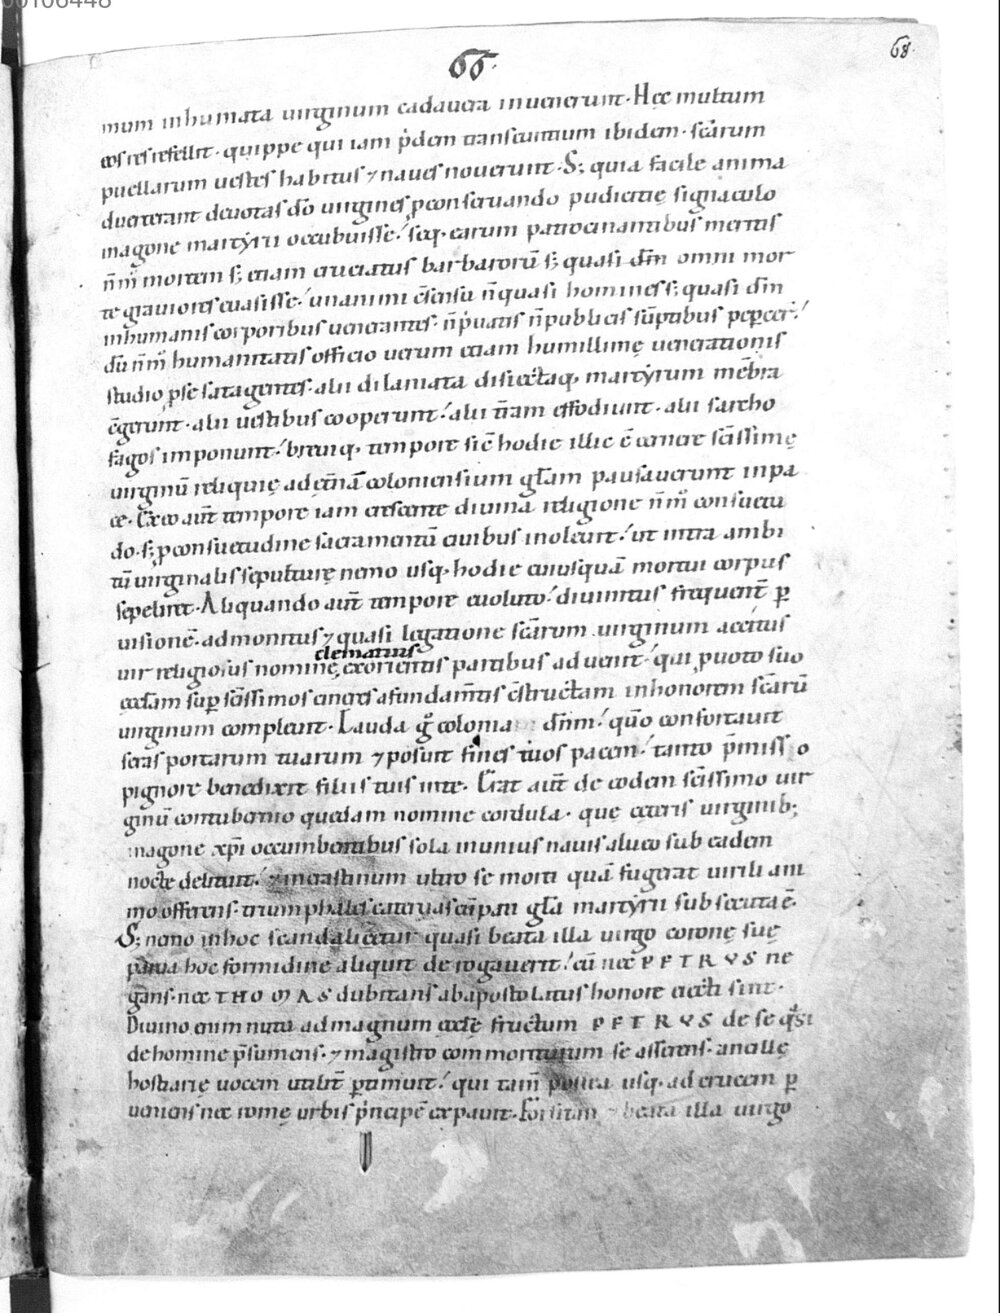 00106448
66.
68.
mum inhumata uirginum cadauera inuenerunt. Hęc multum
eos res refellit. quippe qui iam p̍dem transeuntium ibidem. sc̄arum
puellarum uestes habitus ⁊ naues nouerunt. S; quia facile anima
duerterant deuotas dō uirgines p̱conseruando pudicitię signaculo
inagone martyrii occubuisse.' seq; earum patrocinantibus meritis
n̄ m̊ mortem s; etiam cruciatus barbarorū s; quasi dn̄i omni mor
te grauiores euasisse.' unanimi c̄sensu n̄ quasi hominess; quasi dn̄i
inhumanis corporibus uenerantes. n̄ p̍uatis n̄ publicis sūptibus peꝑcer̄.'
dū n̄ m̊ humanitatis officio uerum etiam humillimę uenerationis
studio ꝑse satagentes. alii dilaniata disiectaq; martyrum mēbra
c̄gerunt. alii uestibus cooperunt.' alii tr̄am effodiunt. alii sarcho
fagos imponunt.' breuiq; tempore sic̄ hodie illic ē cernere sc̄issimę
uirginū reliquię ad ęt̄nā coloniensium gl̄am pausauerunt inpa
ce. Ex eo aūt tempore iam crescente diuina religione n̄ m̊ consuetu
do. s; ꝑconsuetudine sacramentū ciuibus inoleuit.' ut intra ambi
tū uirginalis sepulturę nemo usq; hodie cuiusquā mortui corpus
sepeliret. Aliquando aūt tempore euoluto.' diuinitus frequent̄ ꝑ
uisionē. admonitus ⁊ quasi legatione sc̄arum uirginum accitus
clematius
uir religiosus nomine, exorientis partibus aduenit.' qui ꝓuoto suo
ęccl̄am suꝑ sc̄issimos cineres afundam̄tis c̄structam inhonorem sc̄arū
uirginum compleuit. Lauda g̊ colonia dn̄m.' qūo confortauit
seras portarum tuarum ⁊ posuit fines tuos pacem.' tanto p̄misso
pignore benedixit filiis tuis inte. Erat aūt de eodem sc̄issimo uir
ginū contubernio quedam nomine cordula. que ceteris uirginib;
inagone xp̄i occumbentibus sola intimius nauis alueo sub eadem
nocte delituit.' ⁊ incrastinum ultro se morti quā fugerat uirili ani
mo offerens. triumphales cateruas
S; nemo inhoc scandalicetur quasi beata illa uirgo coronę suę
parua hoc formidine aliquit derogauerit.' cū nec PETRVS ne
gans. nec THOMAS dubitans abapostolatus honore eiecti sint.
Diuino enim nutu admagnum ęccl̄ę fructum PETRVS de se q̊si
de homine p̄sumens. ⁊ magistro commoriturum se asserens. ancillę
hostiarię uocem utilit̄ ꝑtimuit.' qui tam̄ postea usq; ad crucem ꝑ
ueniens nec romę urbis p̍ncipē expauit. Forsitan ⁊ beata illa uirgo